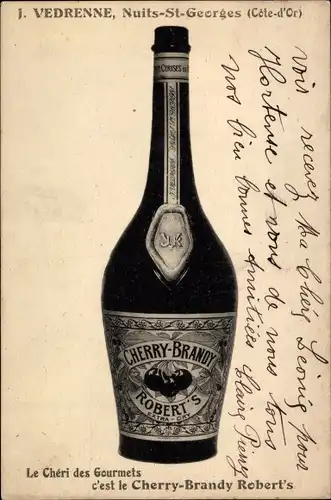 J. VEDRENNE, Nuits-St-Georges (Côte-d'Or)
CERISES
CHERRY-BRANDY
ROBERT'S
EXTRA-SEC
voir recevez Ma Chér Léonie pour
Hortense et vous de nous tous
nos bien bonnes amitiées
Claire Pierrey
Le Chéri des Gourmets
c'est le Cherry-Brandy Robert's